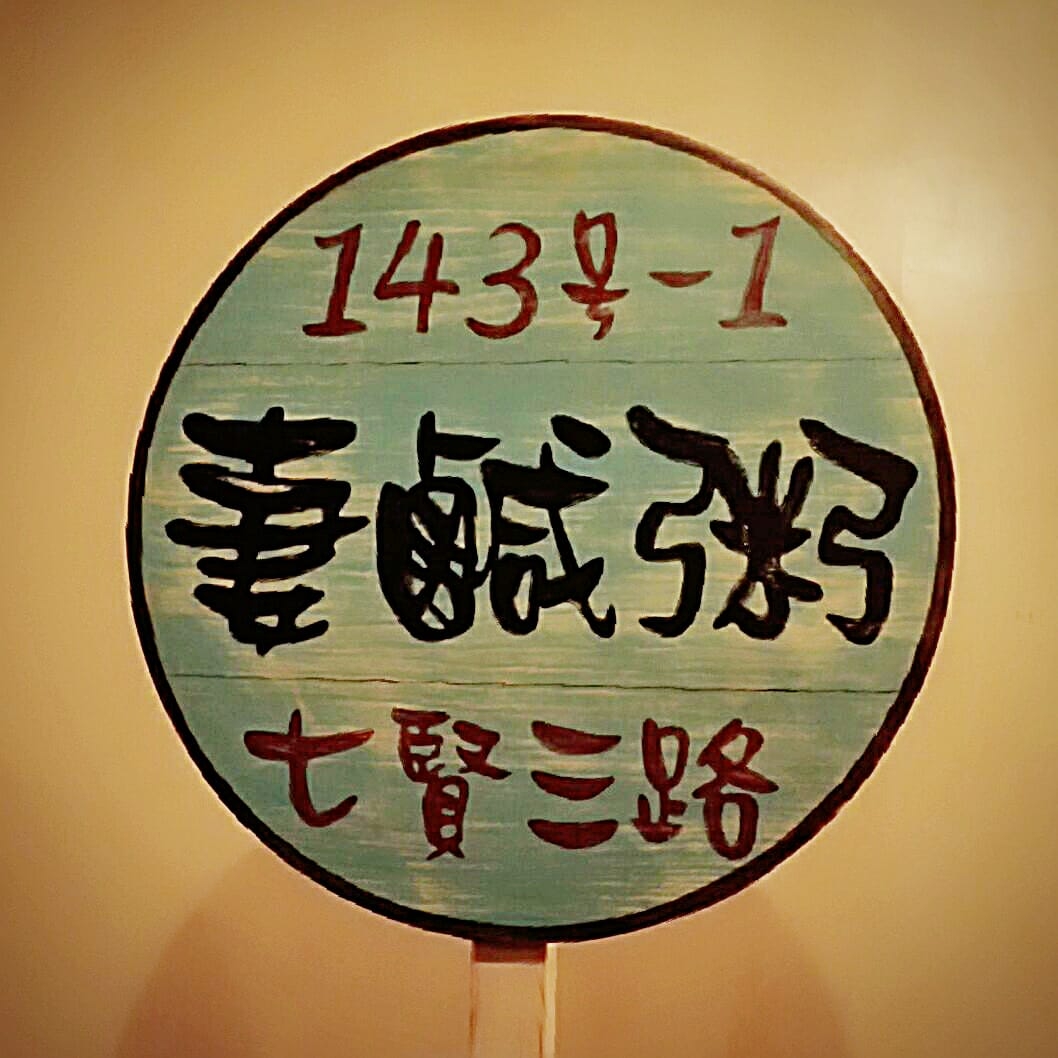 143号-1
妻鹹粥
七賢三路